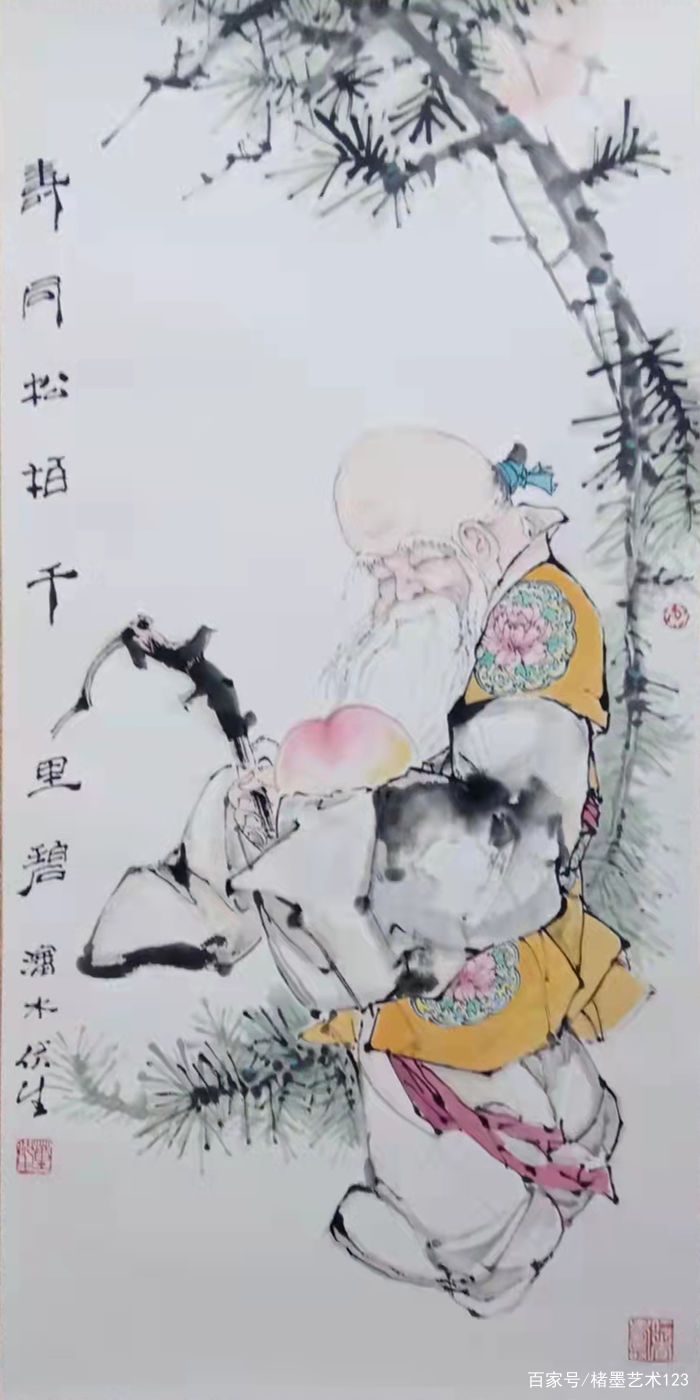 寿同松栢千里碧
水伏生
百家号/楮墨艺术123